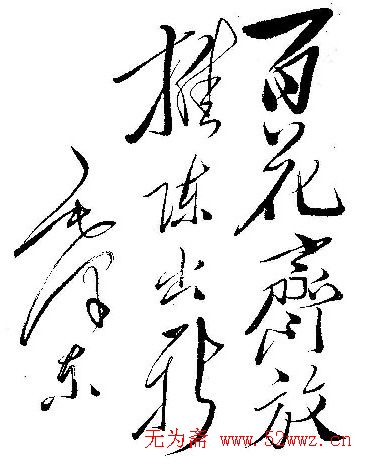 百花齊放
推陈出新
毛泽东
无为斋 www.52wwz.cn